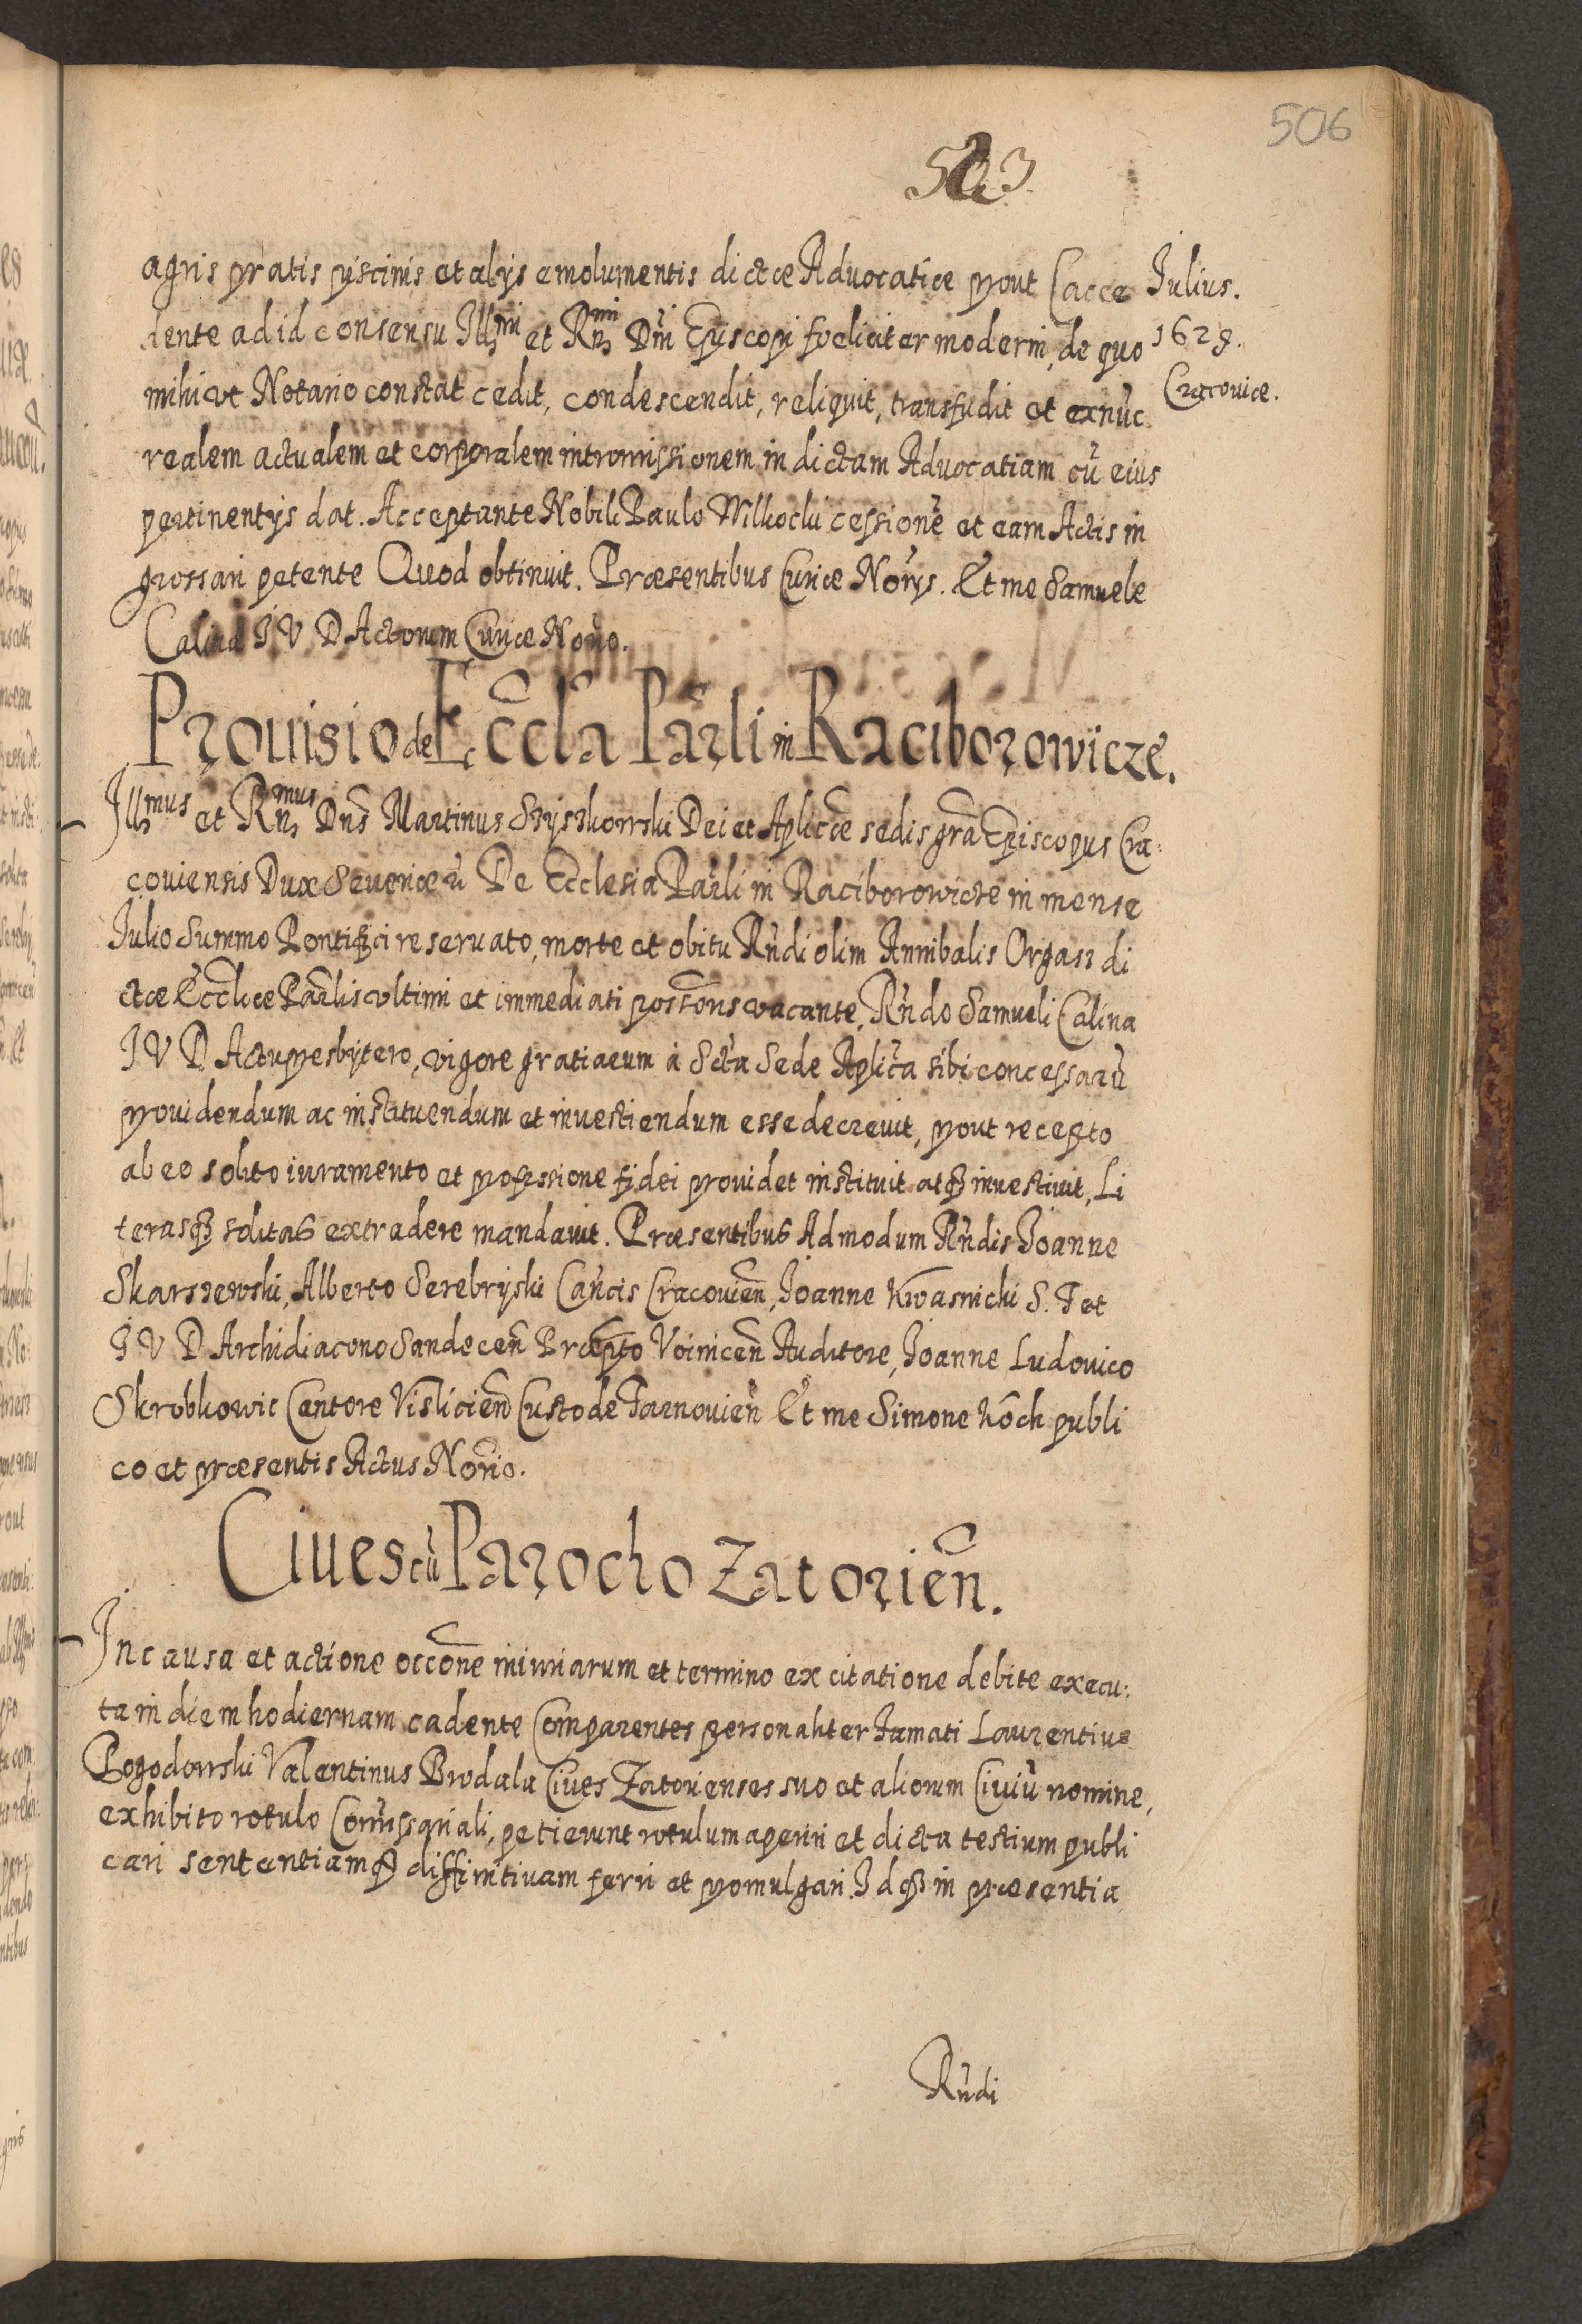 506
503
agris pratis piscinis et alijs emolumentis dictæ Advocatiæ prout (acce
Julius.
dente ad id consensu Illmi et Rmi Dni Episcopi fœliciter moderni, de quo
1628.
mihi vt Notario constat cedit, condescendit, reliquit, transfudit et exnũc
Cracoviæ.
realem actualem et corporalem intromissionem in dictam Advocatiam cũ eius
pertinentijs dat. Acceptante Nobili Paulo Wilkocki cessionẽ et eam Actis in
grossari petente Quod obtinuit. Præsentibus Curiæ Norijs. Et me Samuele
Calina I V D Actorum Curiæ Norio.
Prouisio de Eccla Parli in Raciborowicze.
Illmus et Rmus Dns Martinus Szyszkowski Dei et Aplicæ sedis gra Episcopus Cra:
couiensis Dux Seueriæ De Ecclesia Parli in Raciborowicze in mense
Julio Summo Pontifici reseruato, morte et obitu Rndi olim Annibalis Orgas di
ctæ Eccliæ Parlis vltimi et immediati possoris vacante, Rndo Samueli Calina
I V D Actu presbytero, vigore gratiarum à Scta Sede Aplica sibi concessarũ
prouidendum ac instituendum et inuestiendum esse decreuit, prout recepto
ab eo solito iuramento et professione fidei prouidet instituit atq inuestiuit, Li
terasq solitas extradere mandauit. Præsentibus Admodum Rndis Joanne
Skarszewski, Alberto Serebryski Cancis Cracouien, Joanne Kwasnicki S. T et
I V D Archidiacono Sandecen Præpto Voinicen Auditore, Joanne Ludouico
Skrobkowic Cantore Vislicien Custode Tarnouien Et me Simone Koch publi
co et præsentis Actus Norio.
Ciues cũ Parocho Zatorien.
In causa et actione occone iniuriarum et termino ex citatione debite execu:
ta in diem hodiernam cadente Comparentes personaliter Famati Laurentius
Pogodowski Valentinus Brodala Ciues Zatorienses suo et aliorum Ciuiũ nomine,
exhibito rotulo Comissariali, petierunt rotulum aperiri et dicta testium publi
cari sententiamq diffinitiuam ferri et promulgari. Idq in præsentia
Rndi